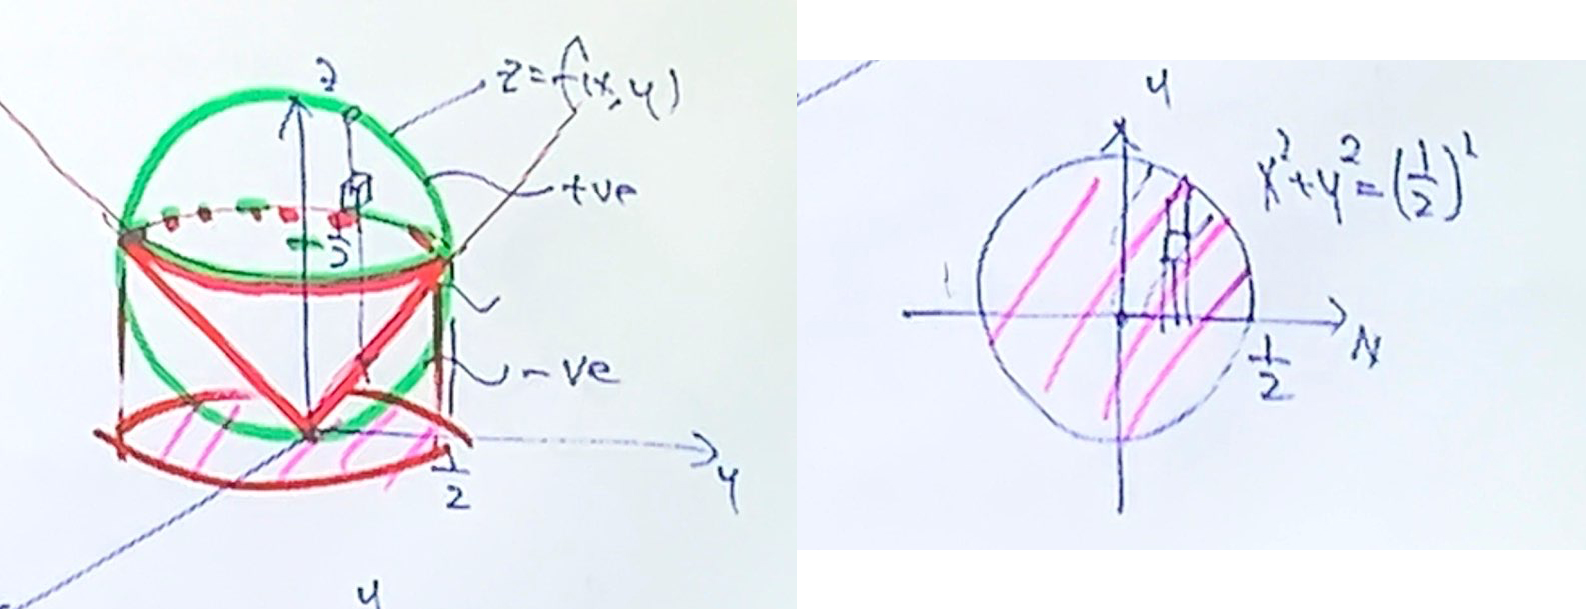 z
z=f(x,y)
+ve
-ve
1/2
y
y
y
x²+y²=(1/2)²
1/2
x